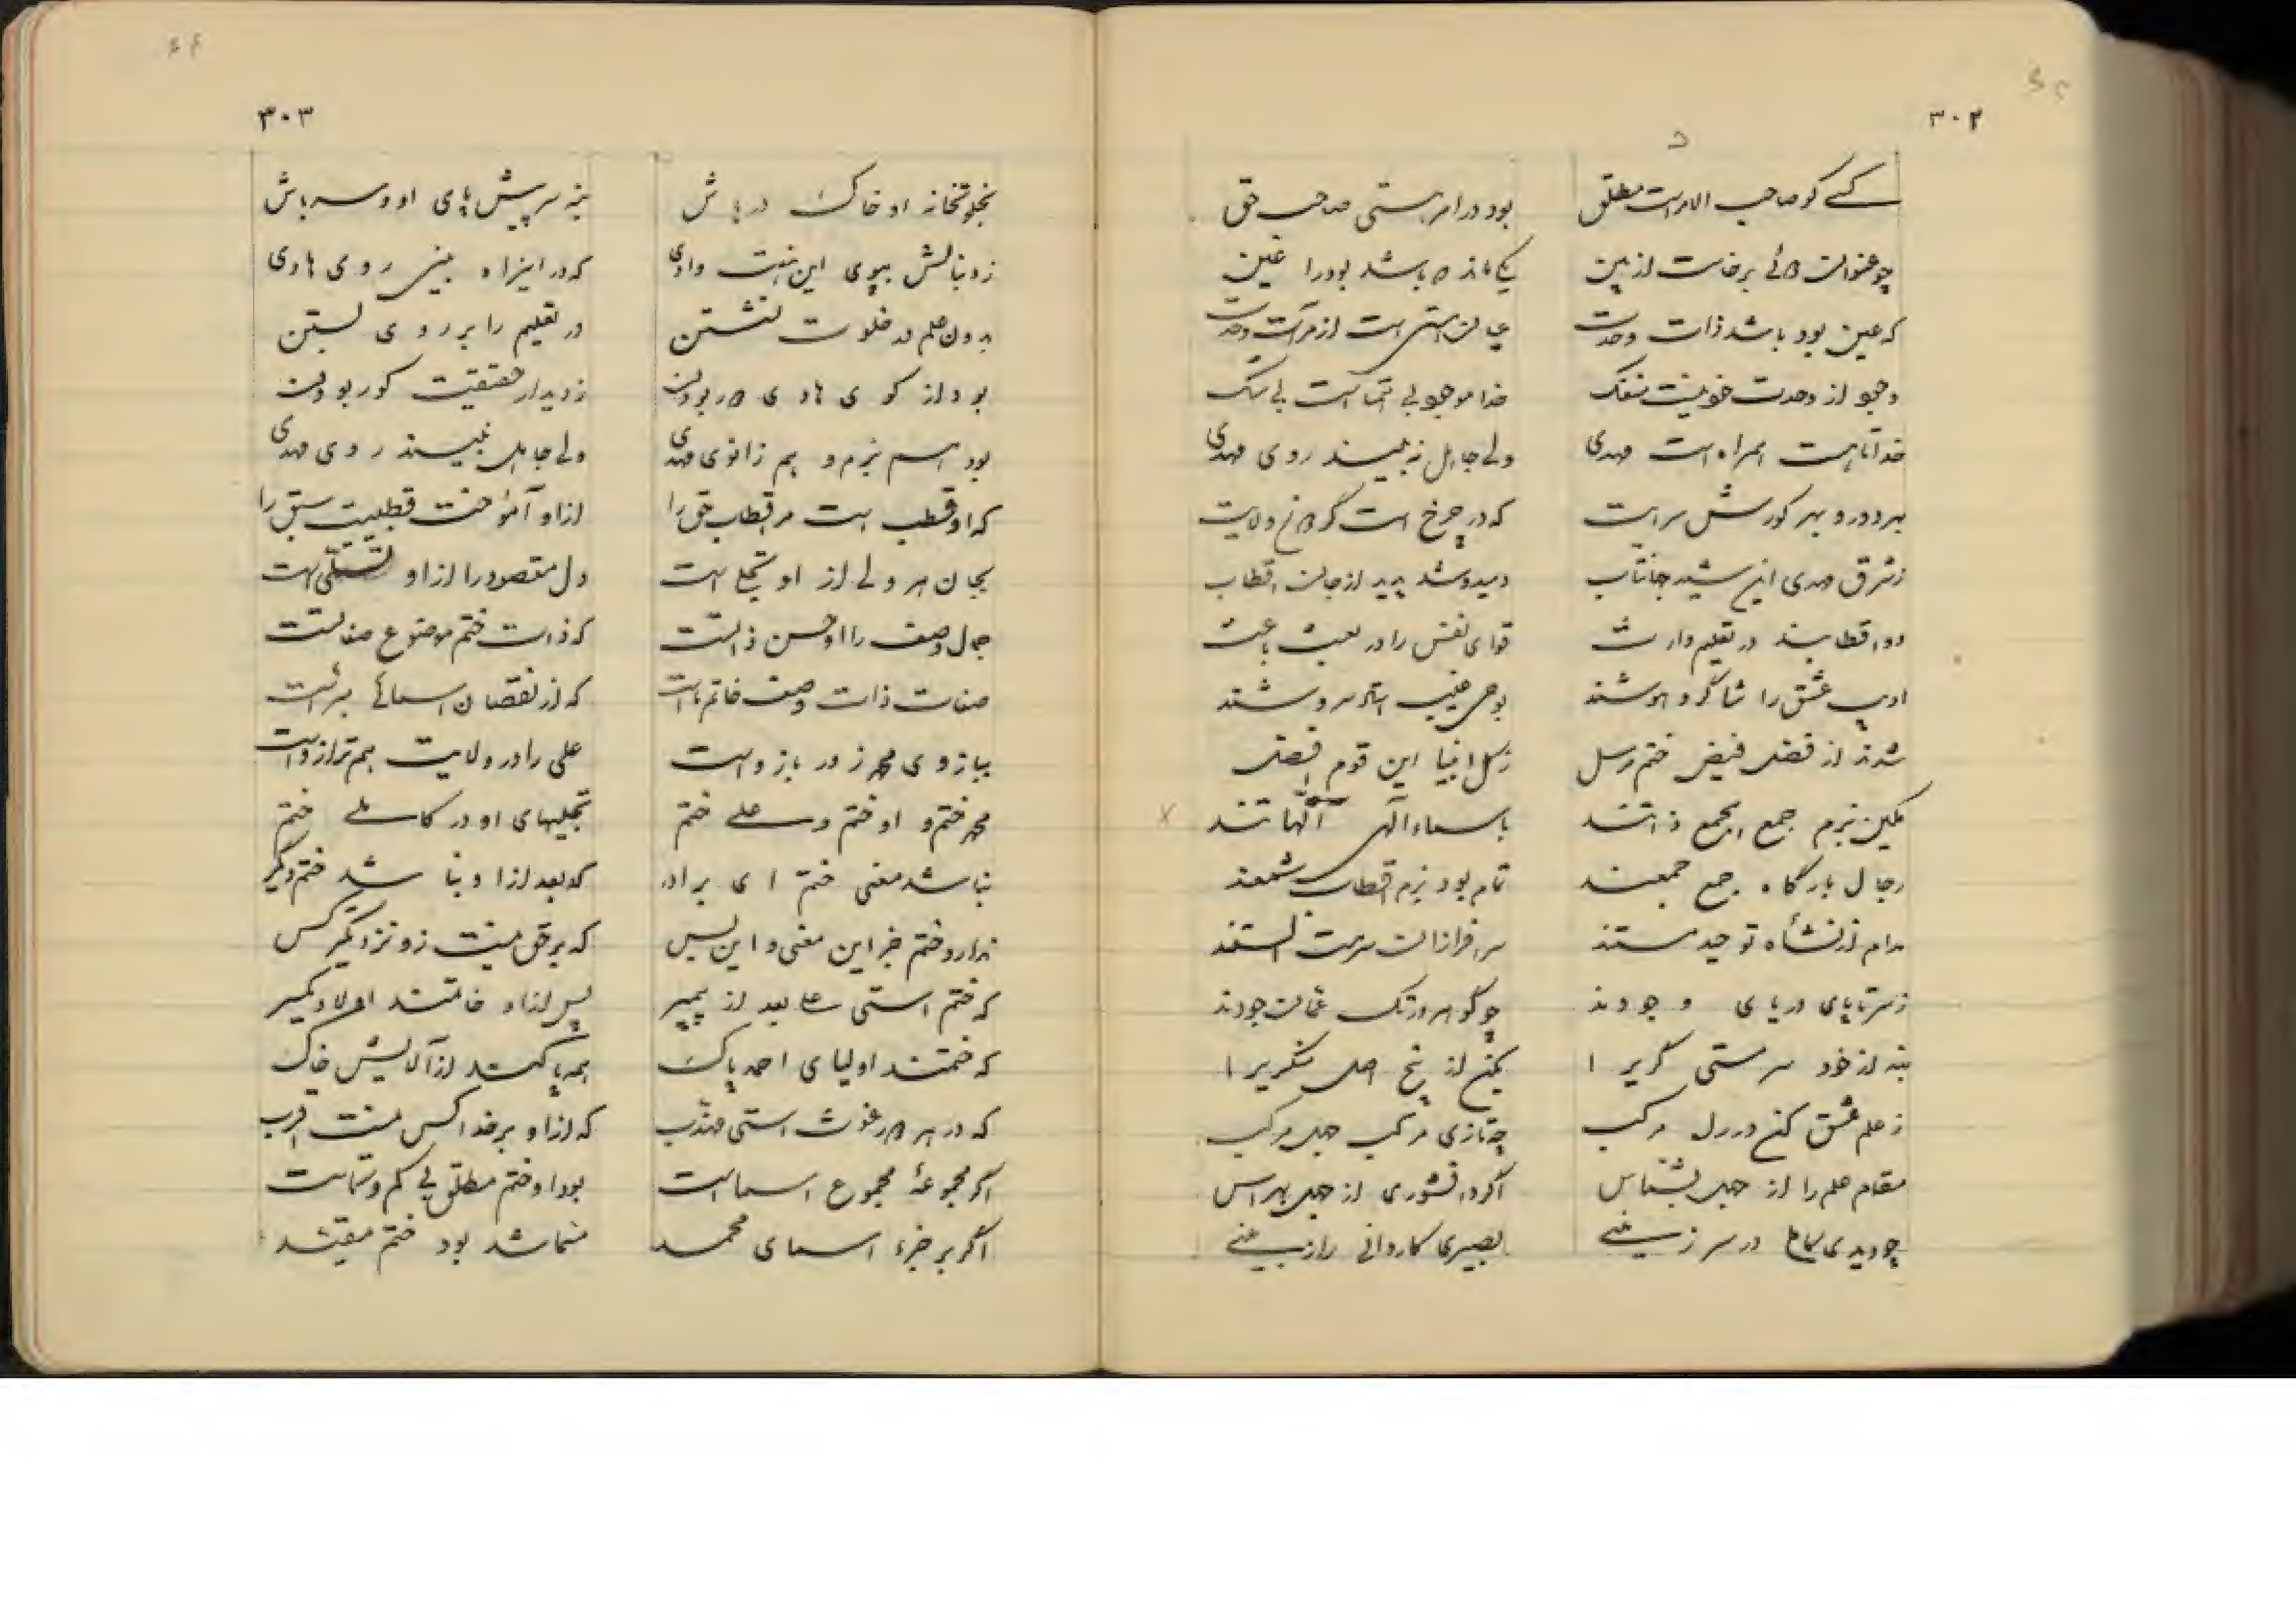 ۳۰۲
کسے کو صاحب الامرست مطلق بود در امر هستی صاحب حق
چو عنوان دوئی برخاست از بین یکی ماند باشد بود را عین
که عین بود باشد ذات وحدت از مرآت وحدت
وجود از وحدت خود نیست منفک خدا موجود بی همتاست بی شک
خدا تا هست همراه است مهدی ولی جاهل نه بیند روی مهدی
بهر دور و بهر کورش سرایت که در چرخ است گردان ولایت
ز شرق مهدی این شید جهانتاب دمید و شد پدید از جان اقطاب
دو اقطابند در تعلیم وارث قوای نفس را در بعث باعث
ادیب عشق را شاگرد هوشند بوحی غیب استاد سروشند
شدند از فضل فیض ختم رسل ز کل انبیا این قوم افضل
مکین بزم جمع الجمع ذاتند باسماء آلهی الهاتند
رجال بارگاه جمع جمعند تمام بود بزم اقطاب شمعند
مدام از نشأه توحید مستند سرافرازان سرمست الستند
ز سر تا پای دریای وجودند چو گوهر در تک عمان جودند
بنه از خود سرستی گریز ا بکن از بیخ اصل
ز علم عشق کن در دل مرکب چه تازی مرکب جهل مرکب
مقام علم را از جهل بشناس اگر دانشوری از جهل بهراس
چو دیدی کاملی در سرزمینے بصیری کاردانی رازبینے
۳۰۳
بخلوتخانه او خاک در باش بنه سر پیش پای او و سر باش
ز دنبالش بپوی این هفت وادی که در این راه بینی روی هادی
بدون علم در خلوت نشستن در تعلیم را بر روی بستن
بود از کوی هادی دور بودن ز دیدار حقیقت کور بودن
بود هم بزم و هم زانوی مهدی ولی جاهل نبیند روی مهدی
که او قطب است مر اقطاب حق را از او آموخت قطبیت سبق را
بجان هر ولی از او تجلی است دل مقصود را از او تسلی است
جمال وصف را او حسن ذاتست که ذات ختم موضوع صفاتست
صفات ذات وصف خاتم ماست که از نقصان اسمائی مبراست
ببازوی محمد زور بازوست علی را در ولایت هم ترازوست
محمد ختم و او ختم و علی ختم تجلیهای او در کاملے ختم
نباشد معنی ختم ای برادر که بعد از او نباشد ختم دیگر
ندارد ختم جز این معنی و این بس که بر حق نیست زو نزدیکتر کس
که ختم استی علی بعد از پیمبر پس از او خاتمند اولاد یکسر
که ختمند اولیای احمد پاک همه پاکند از آلایش خاک
که در هر دور غوث استی مهذب که از او بر خدا کس نیست اقرب
اگر مجموعهٔ مجموع اسماست بود او ختم مطلق بی کم و کاست
اگر بر جزء اسمای محمد بود ختم مقید